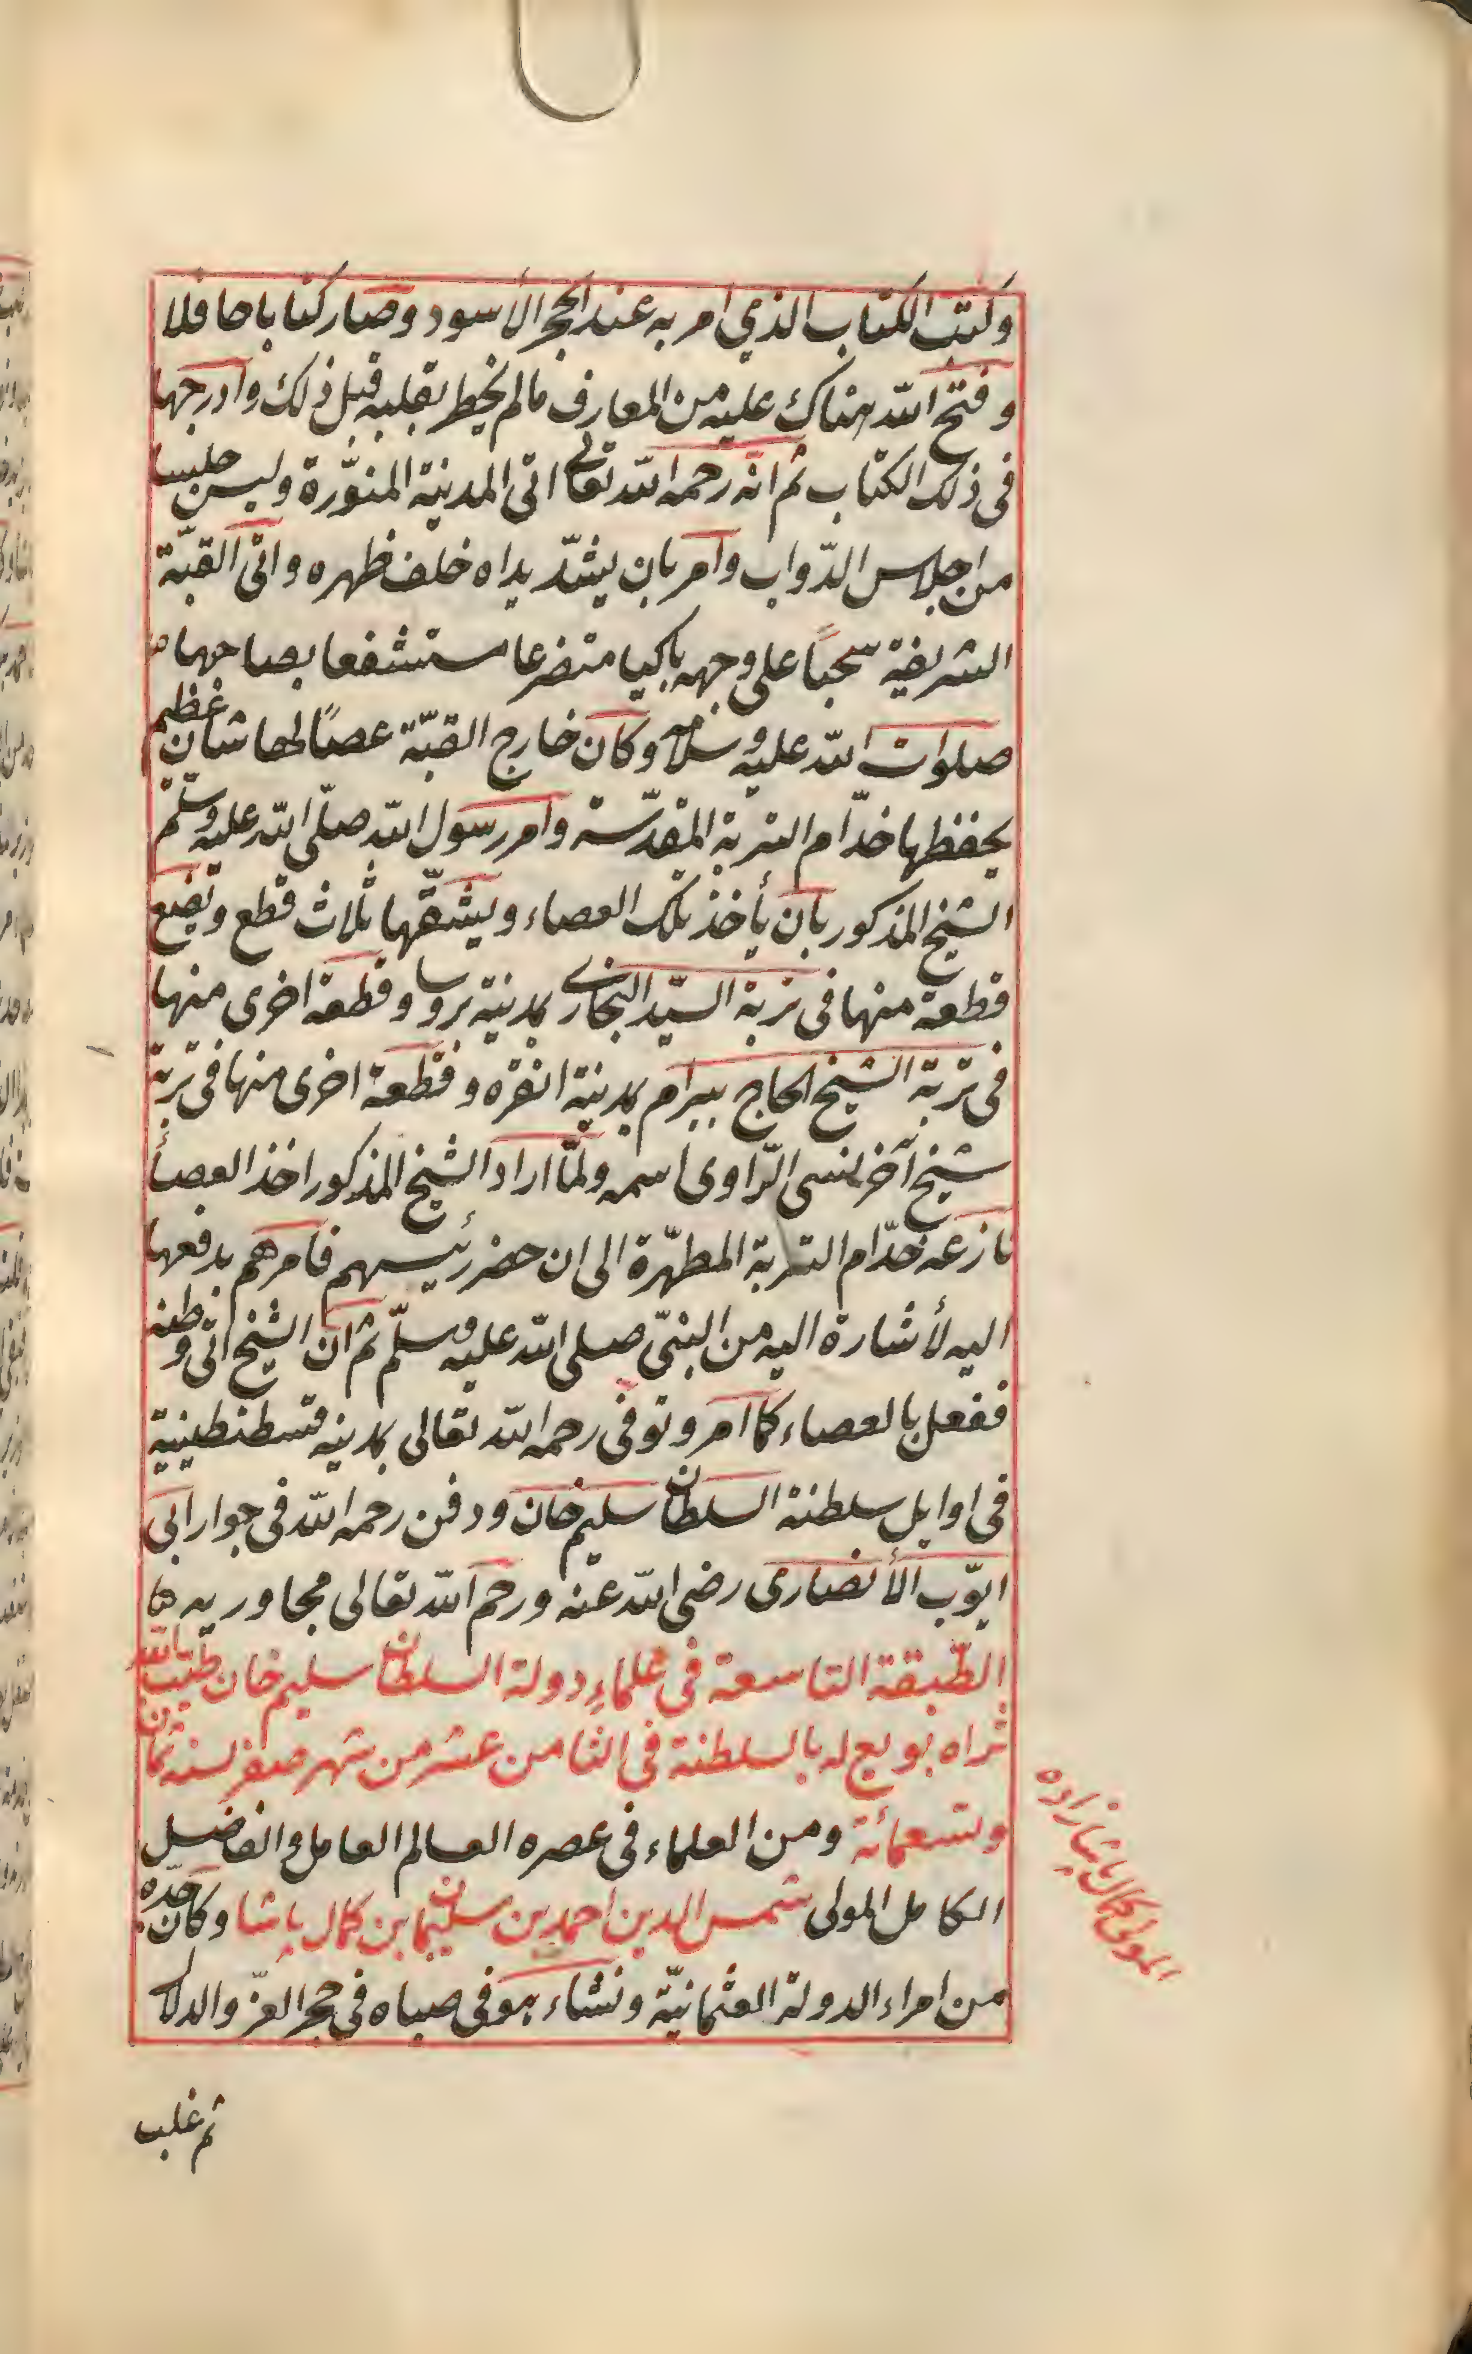 وكتب الكتاب الذي امر به عند الحجر الأسود وصار كتابا حافلا
وفتح الله هناك عليه من المعارف مالم يخطر بقلبه قبل ذلك وادرجها
فى ذلك الكتاب ثم انّه رحمه الله تعالى اتى المدينة المنوّرة ولبس حلسا
من اجلاس الدّواب وامر بان يشدّ يداه خلف ظهره واتى القبّة
الشريفة سحبًا على وجهه باكيا متضرعا مستشفعا بصاحبها
صلوات الله عليه وسلامه وكان خارج القبّة عصًا لها شأن عظيم
يحفظها خدّام التربة المقدّسة وامر رسول الله صلّى الله عليه وسلّم
الشيخ المذكور بان يأخذ تلك العصاء ويشقّها ثلاث قطع وتضع
قطعة منها فى تربة السيّد البخارى بمدينة بروسا وقطعة اخرى منها
فى تربة الشيخ الحاج بيرام بمدينة انقره وقطعة اخرى منها فى تربة
شيخ آخر نسى الرّاوى اسمه ولمّا اراد الشيخ المذكور اخذ العصأ
نازعه خدّام التربة المطهّرة الى ان حضر رئيسهم فامرهم بدفعها
اليه لأشارة اليه من النبىّ صلى الله عليه وسلّم ثم ان الشيخ اتى وطنه
ففعل بالعصاء كما امر وتوفى رحمه الله تعالى بمدينه قسطنطينية
فى اوايل سلطنة السلطان سليم خان ودفن رحمه الله فى جوار ابى
ايوّب الأنصارى رضى الله عنه ورحم الله تعالى مجاوريه
الطّبقة التاسعة فى علماءِ دولة السلطان سليم خان طيّب الله
ثراه بويع له بالسلطنة فى الثامن عشر من شهر صفر لسنة ثمان
وتسعمائة ومن العلماء فى عصره العالم العامل والفاضل
الكامل المولى شمس الدين احمد بن سليمان بن كمال پاشا وكان جدّه
من امراء الدولة العثمانيّة ونشاء هو فى صباه فى حجر العزّ والدلال
ثم غلب
المولى كمال پاشا زاده